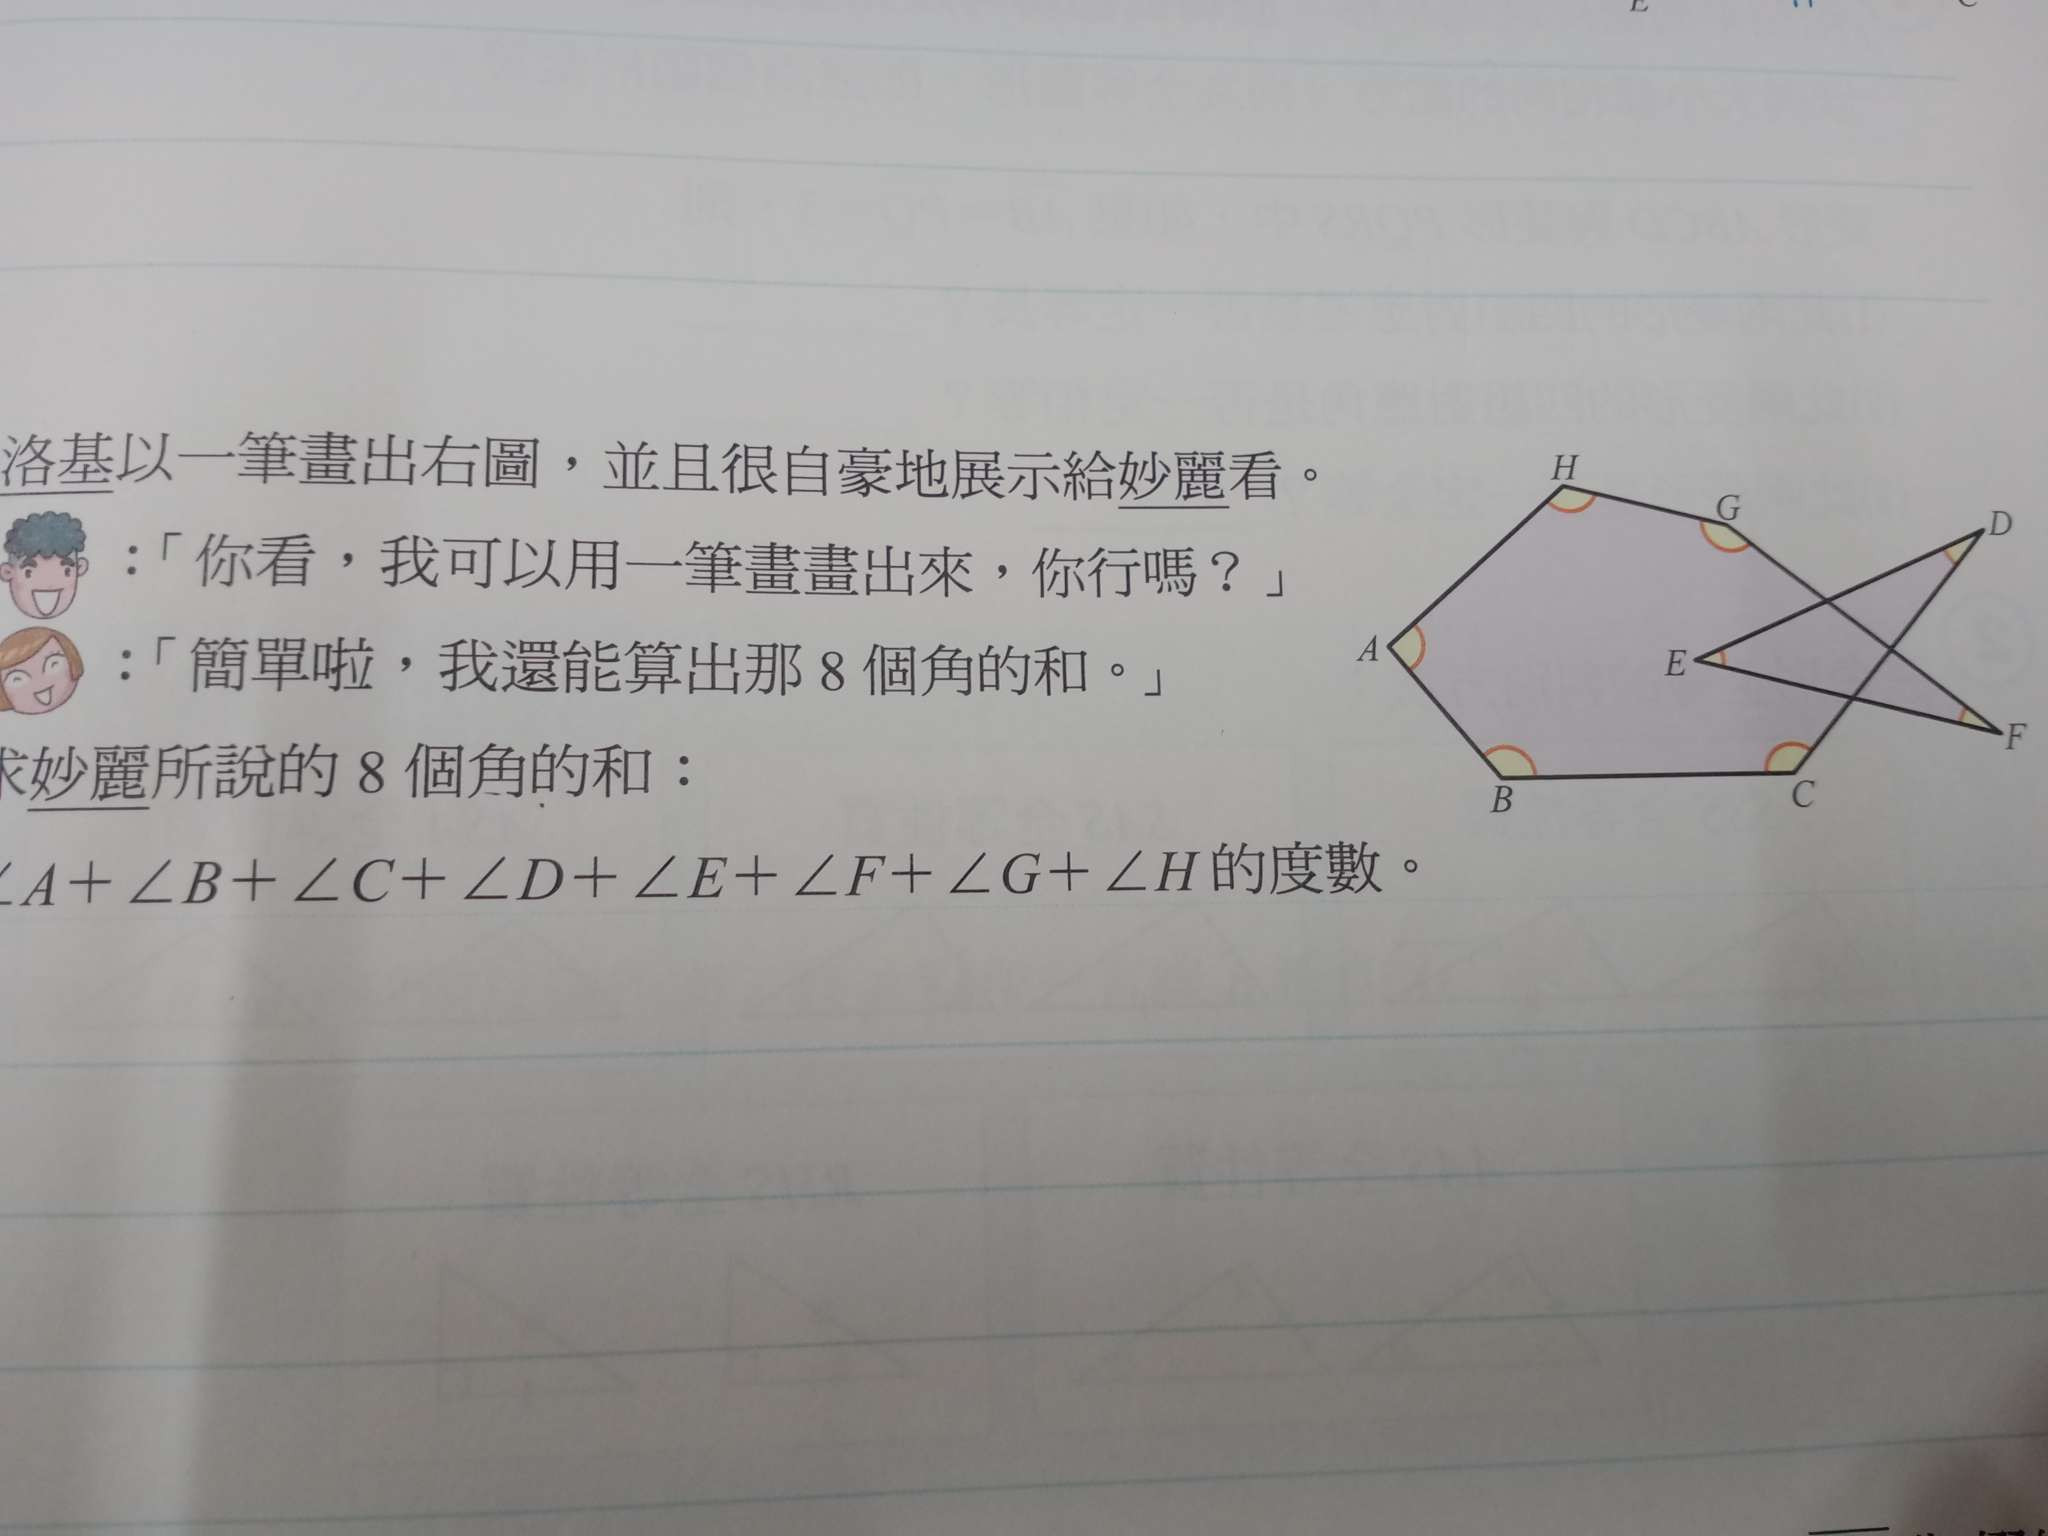 E C
洛基以一筆畫出右圖，並且很自豪地展示給妙麗看。
：「你看，我可以用一筆畫畫出來，你行嗎？」
：「簡單啦，我還能算出那 8 個角的和。」
求妙麗所說的 8 個角的和：
∠A＋∠B＋∠C＋∠D＋∠E＋∠F＋∠G＋∠H的度數。
H
G
D
A
E
F
B
C